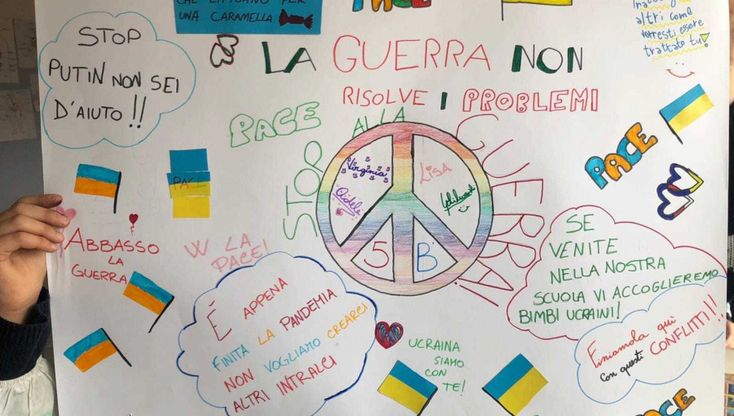 CHE LITIGANO PER
UNA CARAMELLA
PACE
altri come
vorresti essere
trattato tu!
STOP
PUTIN NON SEI
D'AIUTO!!
LA GUERRA NON
RISOLVE I PROBLEMI
PACE
STOP ALLA GUERRA!
Virginia
Lisa
Adele
5 B
PACE
PACE
ABBASSO
LA
GUERRA
W LA
PACE!
SE
VENITE
NELLA NOSTRA
SCUOLA VI ACCOGLIEREMO
BIMBI UCRAINI!
É APPENA
FINITA LA PANDEMIA
NON VOGLIAMO CREARCI
ALTRI INTRALCI
UCRAINA
SIAMO
CON
TE!
Finiamola qui
con questi CONFLITTI!!